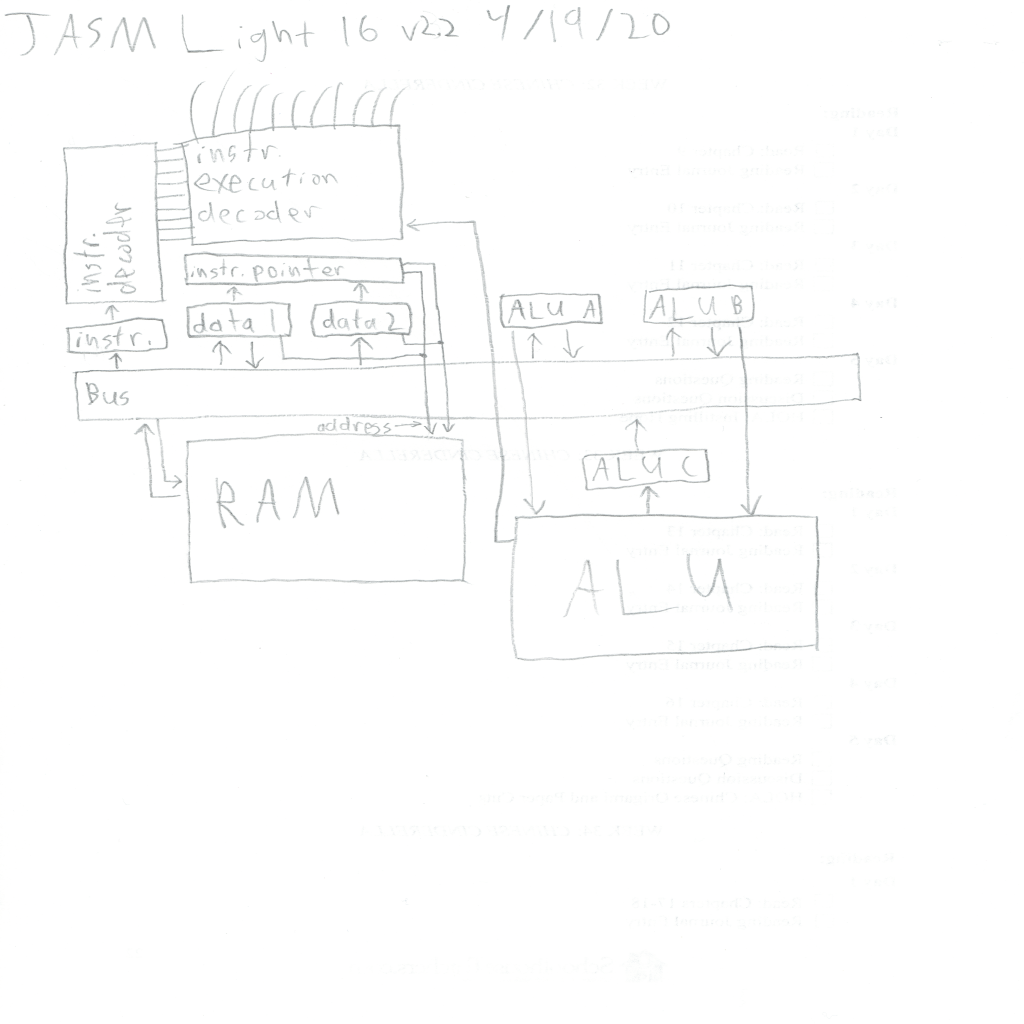 JASM Light 16 v2.2 4/19/20
instr.
execution
decoder
instr.
decoder
instr. pointer
data 1
data 2
instr.
ALU A
ALU B
Bus
address
ALU C
RAM
ALU